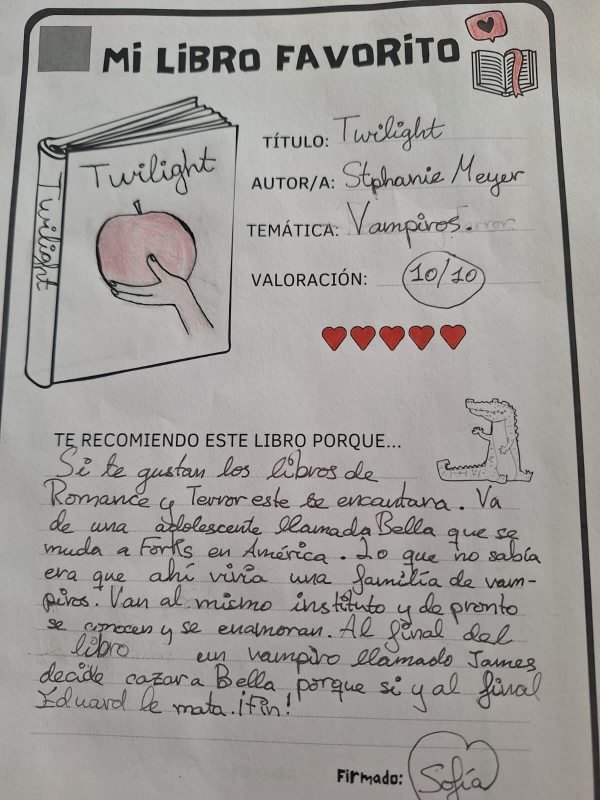 MI LIBRO FAVORITO
Twilight
Twilight
TÍTULO: Twilight
AUTOR/A: Stphanie Meyer
TEMÁTICA: Vampiros. Terror
VALORACIÓN: 10/10
TE RECOMIENDO ESTE LIBRO PORQUE...
Si te gustan los libros de
Romance y Terror este te encantara. Va
de una adolescente llamada Bella que se
muda a Forks en América. Lo que no sabía
era que ahí vivia una familia de vam-
piros. Van al mismo instituto y de pronto
se conocen y se enamoran. Al final del
libro un vampiro llamado James
decide cazar a Bella porque si y al final
Eduard le mata. ¡Fin!
Firmado: Sofía